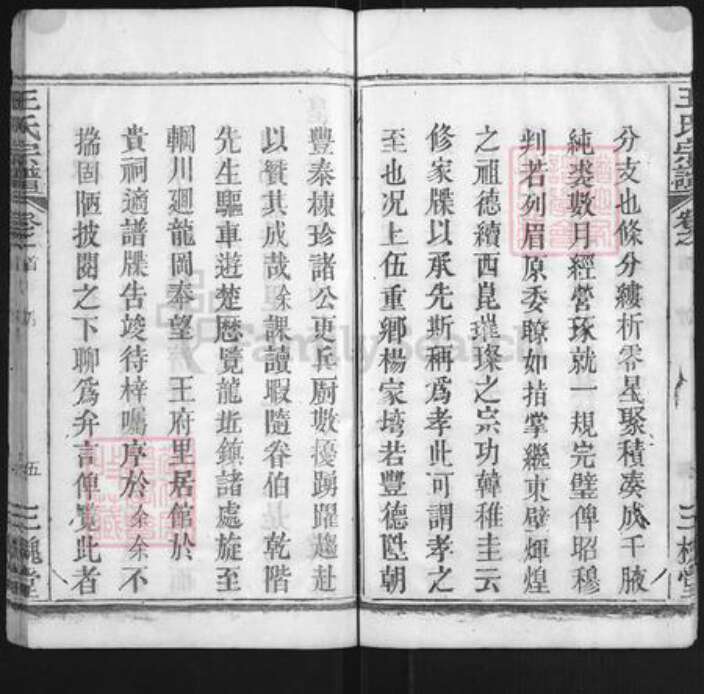 分支也條分縷析零星聚積凑成千腋
純裘數月經營琢就一規完璧俾昭穆
判若列眉原委瞭如指掌繼東壁煇煌
之祖德續西崑璀璨之宗功韓稚圭云
修家牒以承先斯稱爲孝此可謂孝之
至也况上伍重鄉楊家塆若豐德陞朝
豐泰棟珍諸公更兵厨數擾踴躍趨赴
以贊其成哉余課讀暇隨眷伯乾階
先生驅車遊楚歷覽龍坵鎮諸處旋至
輞川廻龍岡奉望王府里居館於
貴祠適譜牒告竣待梓囑序於余余不
揣固陋披閱之下聊爲弁言俾覽此者
王氏宗譜
卷之首
伍
三槐堂
王氏宗譜
卷之
三槐堂
FamilySearch